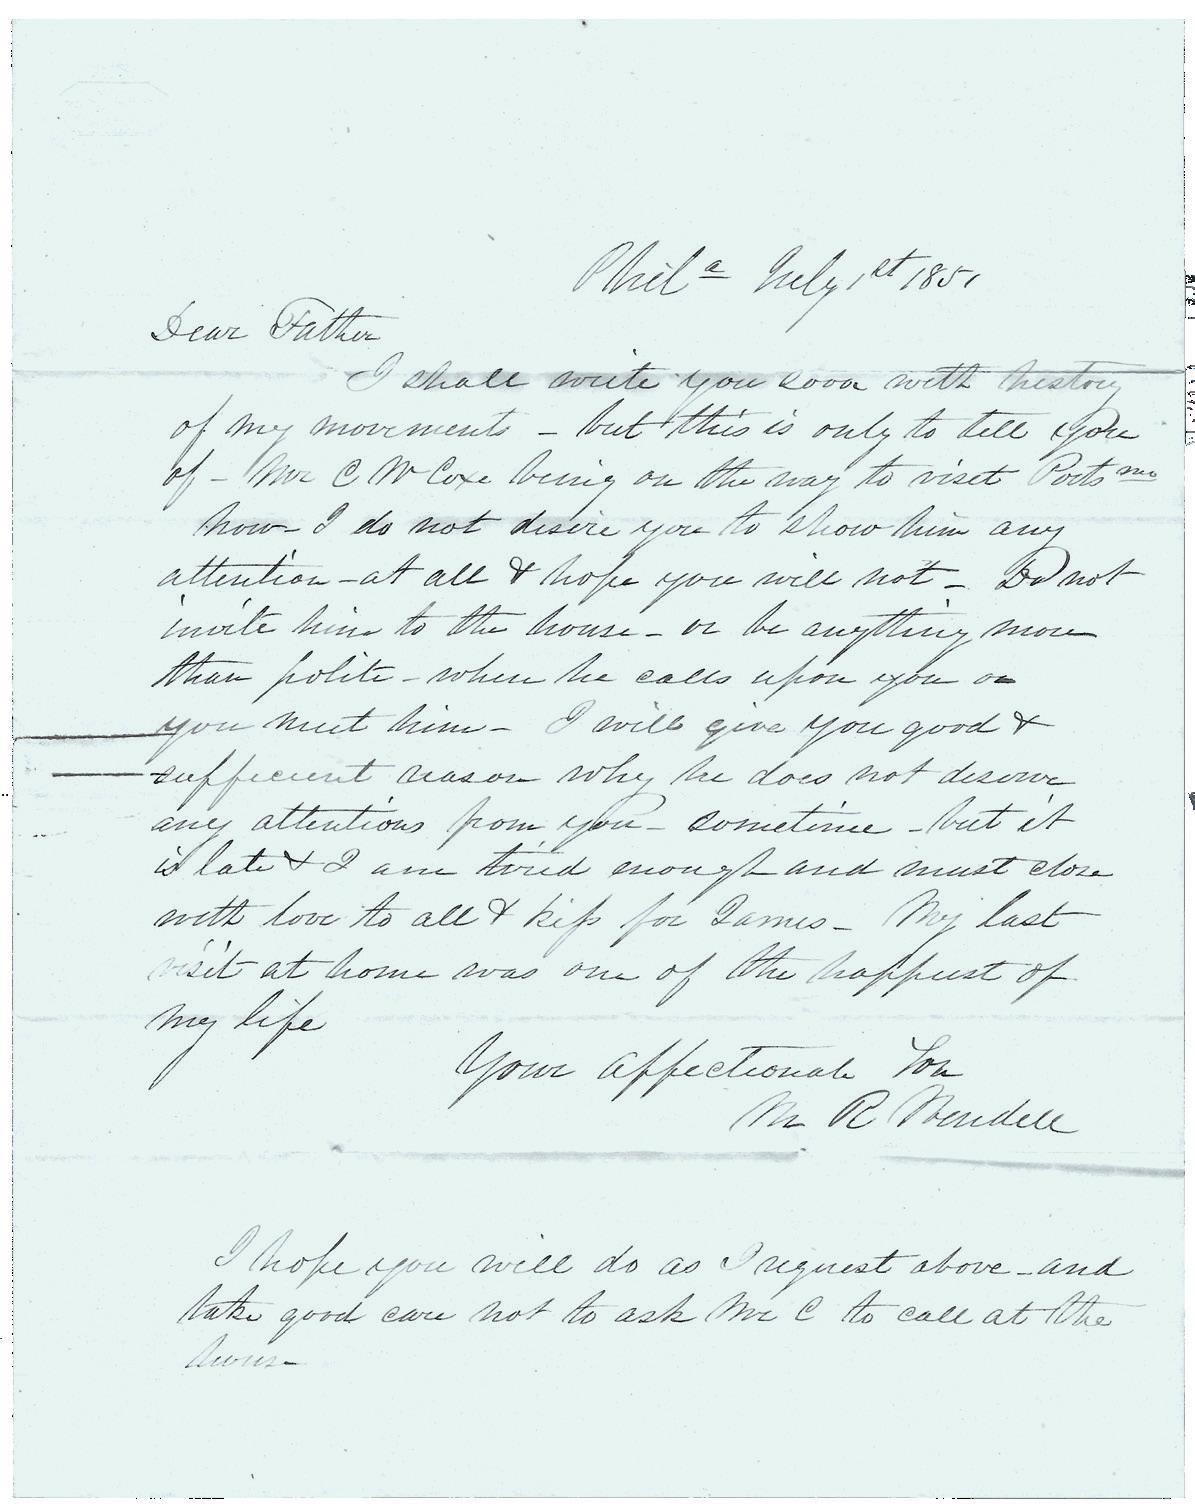 Phila July 1st 1851
Dear Father
I shall write you soon with history
of my movements - but this is only to tell you
of - Mr C W Coxe being on the way to visit Portsmo
now - I do not desire you to show him any
attention - at all & hope you will not - Do not
invite him to the house - or be anything more
than polite - when he calls upon you or
you meet him - I will give you good &
sufficient reason why he does not deserve
any attentions from you - sometime - but it
is late & I am tired enough and must close
with love to all & kiss for James - My last
visit at home was one of the happiest of
my life
Your affectionate Son
M R Wendell
I hope you will do as I request above - and
take good care not to ask Mr C to call at the
house